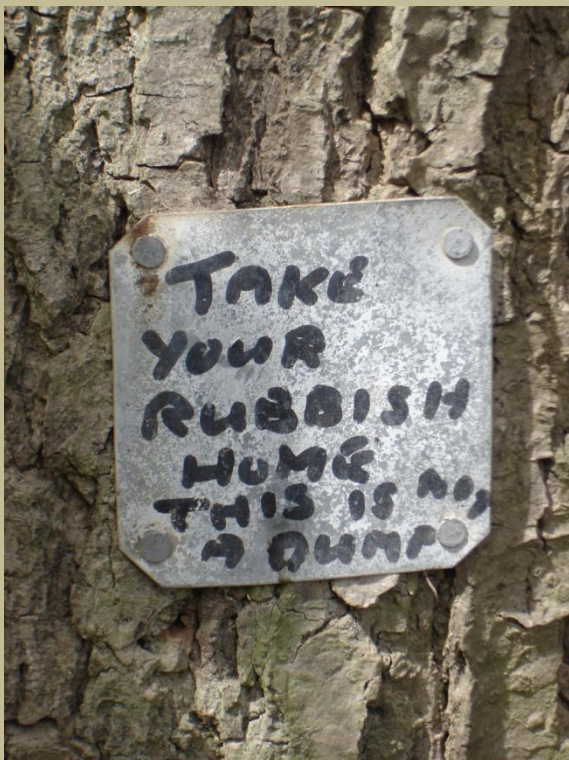 TAKE
YOUR
RUBBISH
HOME
THIS IS NOT
A DUMP